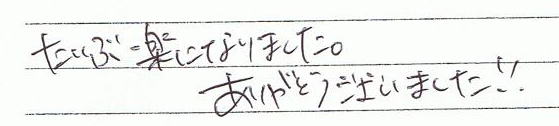 だいぶ楽になりました。
ありがとうございました!!